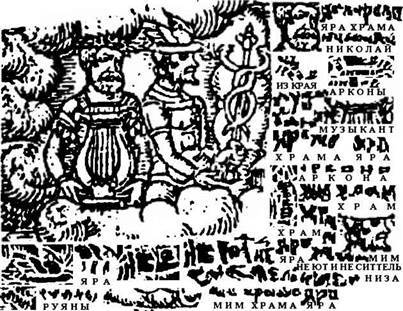 ЯРА ХРАМА
НИКОЛАЙ
ИЗ КРАЯ
АРКОНЫ
МУЗЫКАНТ
ХРАМА ЯРА
АРКОНА
ХРАМ
ХРАМ
ЯРА
МИМ
НЕ ЮТ И НЕ СИТТЕЛЬ
ЯРА
НИЗА
РУЯНЫ
МИМ ХРАМА ЯРА